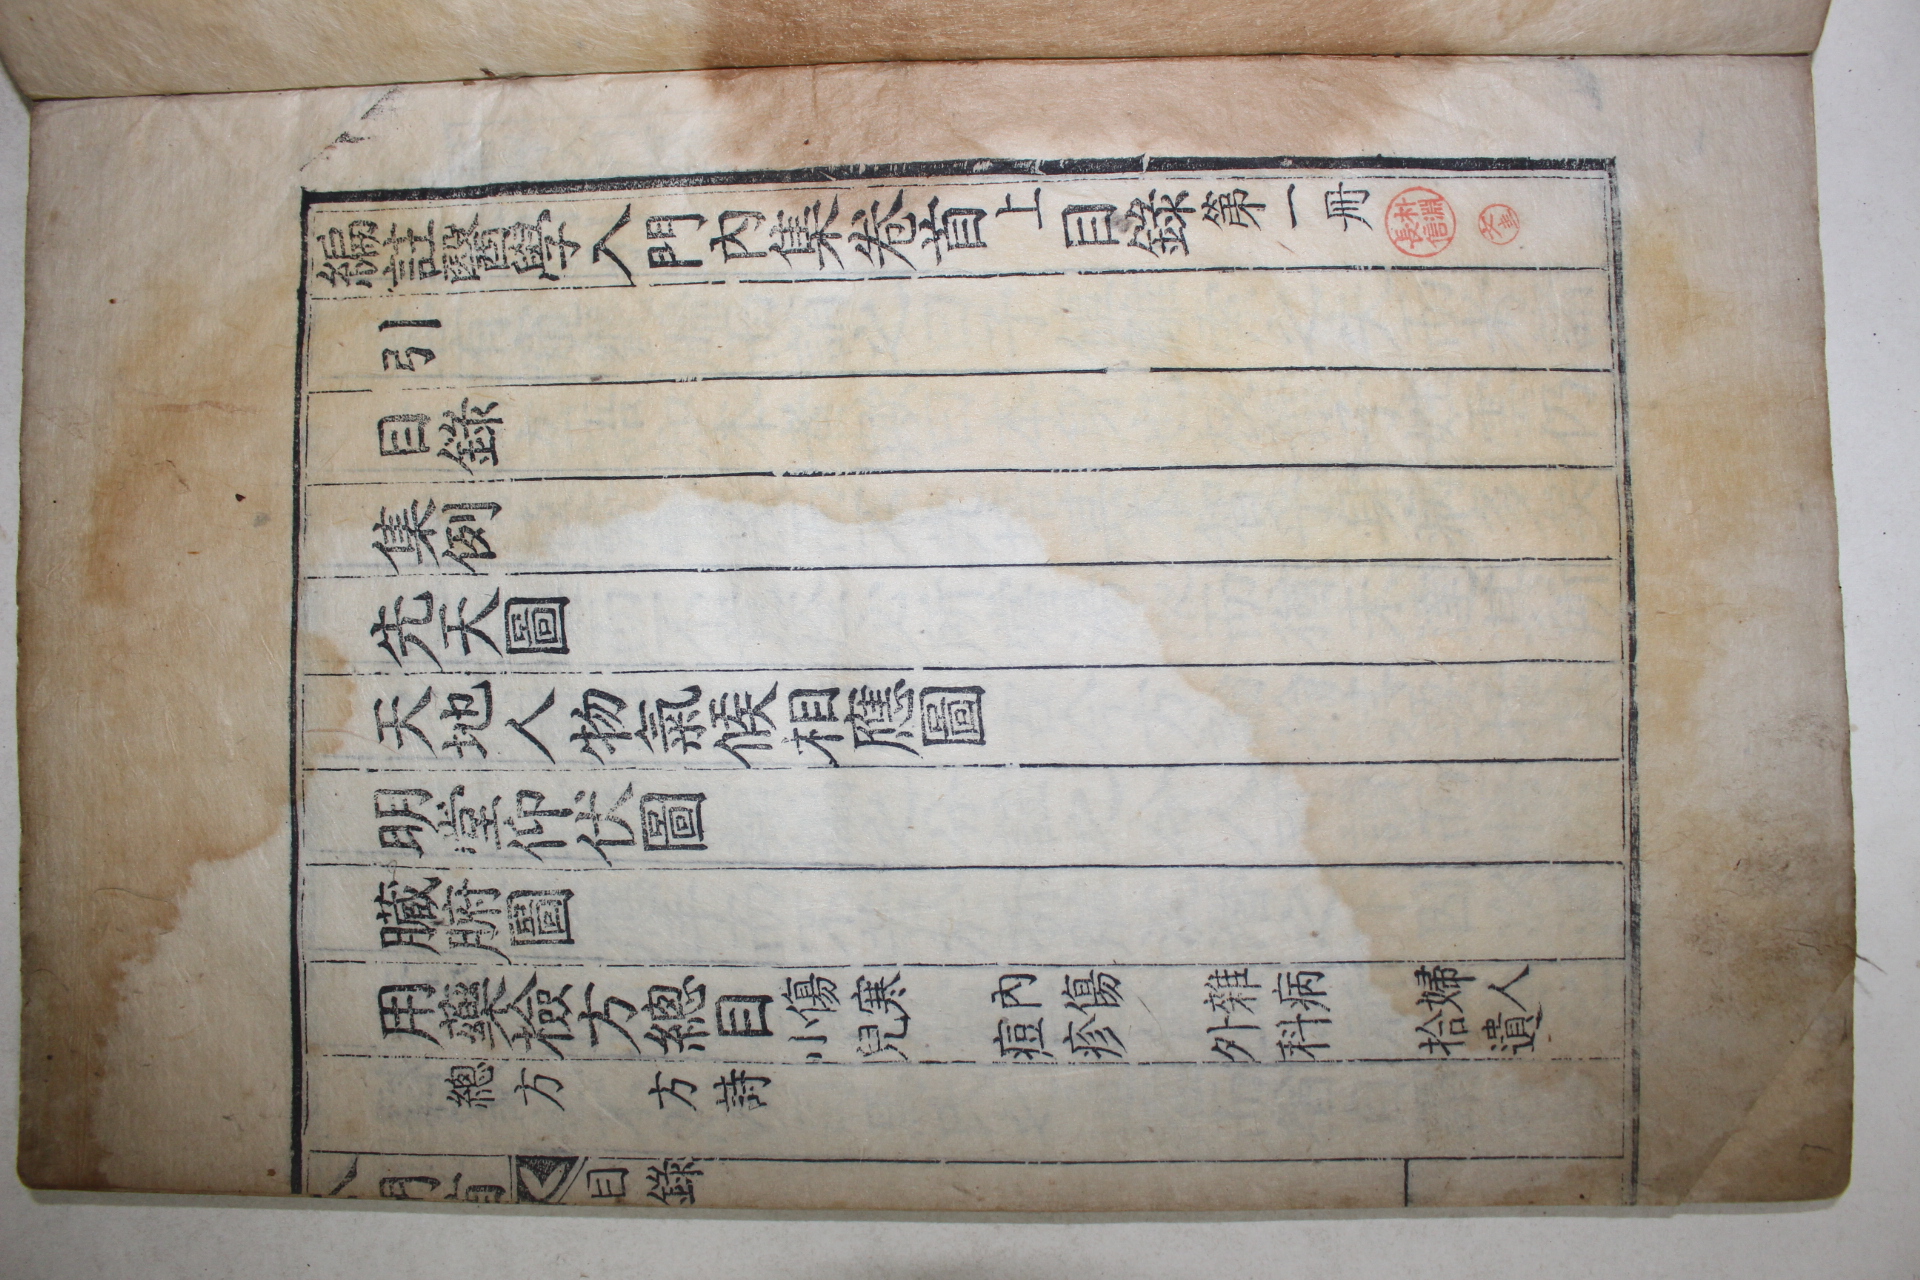 編註醫學入門內集卷首上目錄第一冊
引
目錄
集例
先天圖
天地人物氣候相應圖
明堂仰伏圖
臟腑圖
用藥檢方總目 傷寒 內傷 雜病 婦人
小兒 痘疹 外科 拾遺
總方 方詩
目錄